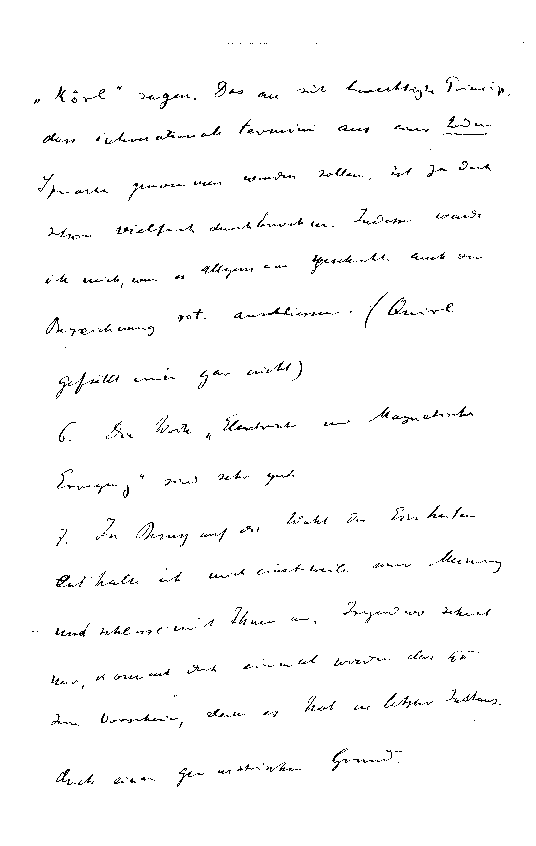 „Körl“ sagen. Das an sich berechtigte Princip,
dass internationale termini aus einer toden
Sprache genommen werden sollen, ist ja doch
schon vielfach durchbrochen. Indess werde
ich mich, wenn es allgemein geschieht auch der
Bezeichnung rot. anschliessen. (Quirl
gefällt mir gar nicht)
6. Die Worte „Electrische und Magnetische
Erregung“ sind sehr gut
7. In Bezug auf die Wahl der Einheiten
enthalte ich mich einstweilen einer Meinung
und schliesse mich Ihnen an. Irgendwo scheint
mir, kommt doch einmal wieder das 4π
zum Vorschein, denn es hat in letzter Instanz
doch einen geometrischen Grund.